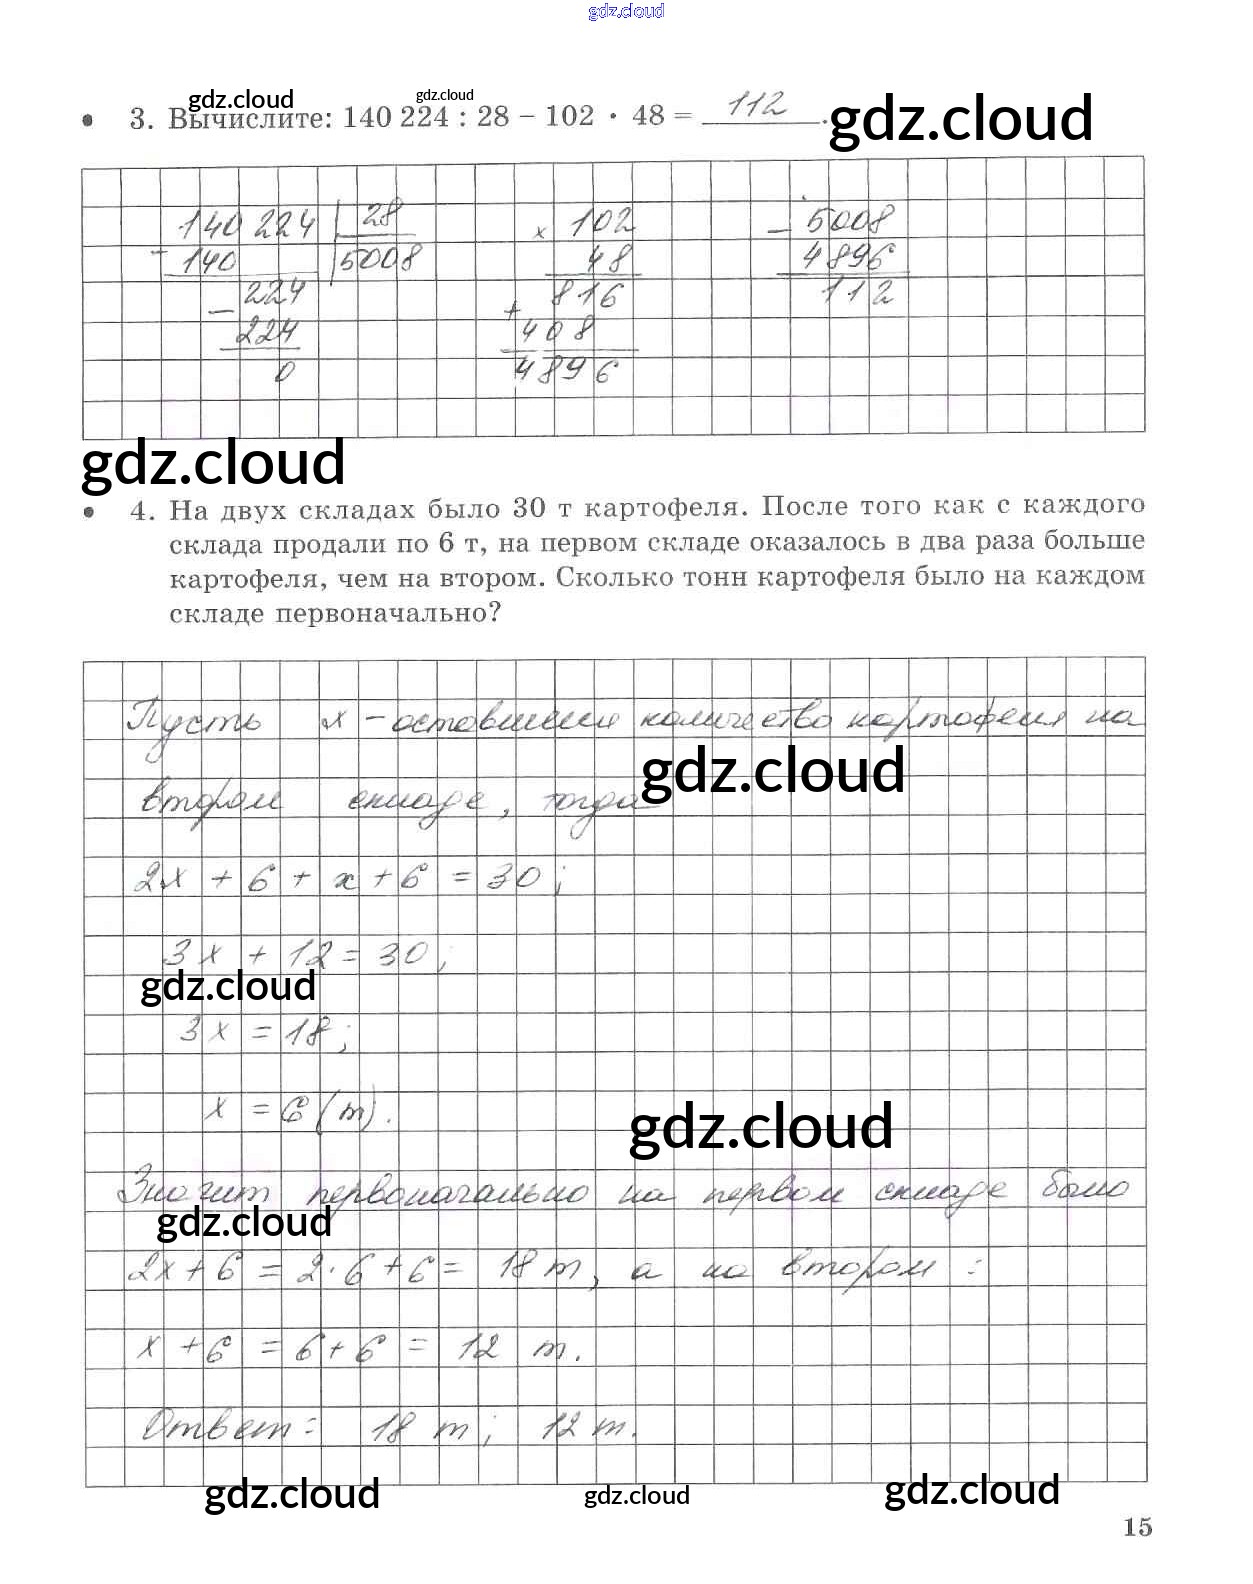 gdz.cloud
gdz.cloud
gdz.cloud
• 3. Вычислите: 140 224 : 28 − 102 · 48 = 112.
gdz.cloud
140 224 | 28
− 140 | 5008
− 224
224
0
× 102
48
+ 816
408
4896
− 5008
4896
112
gdz.cloud
• 4. На двух складах было 30 т картофеля. После того как с каждого
склада продали по 6 т, на первом складе оказалось в два раза больше
картофеля, чем на втором. Сколько тонн картофеля было на каждом
складе первоначально?
Пусть x – оставшееся количество картофеля на
gdz.cloud
втором складе, тогда
2x + 6 + x + 6 = 30;
3x + 12 = 30;
gdz.cloud
3x = 18;
x = 6 (т).
gdz.cloud
Значит первоначально на первом складе было
gdz.cloud
2x + 6 = 2·6 + 6 = 18 т, а на втором :
x + 6 = 6 + 6 = 12 т.
Ответ: 18 т; 12 т.
gdz.cloud
gdz.cloud
gdz.cloud
15